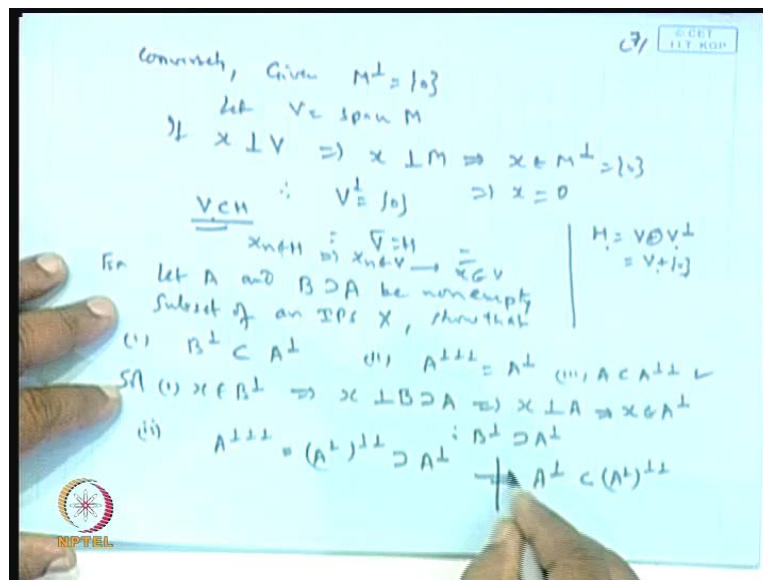 (7)
© CET
I.I.T. KGP
Conversely, Given M⊥ = {0}
Let V = span M
If x ⊥ V ⇒ x ⊥ M ⇒ x ∈ M⊥ = {0}
∴ V⊥ = {0} ⇒ x = 0
V ⊂ H
∴ V̄ = H
xn ∈ H ⇒ xn ∈ V → x ∈ V̄
H = V ⊕ V⊥
= V + {0}
Let A and B ⊃ A be nonempty
subset of an IPS X, show that
(i) B⊥ ⊂ A⊥ (ii) A⊥⊥⊥ = A⊥ (iii) A ⊂ A⊥⊥ ✓
Sol (i) x ∈ B⊥ ⇒ x ⊥ B ⊃ A ⇒ x ⊥ A ⇒ x ∈ A⊥
∴ B⊥ ⊃ A⊥
(ii) A⊥⊥⊥ = (A⊥)⊥⊥ ⊃ A⊥
A⊥ ⊂ (A⊥)⊥⊥
NPTEL